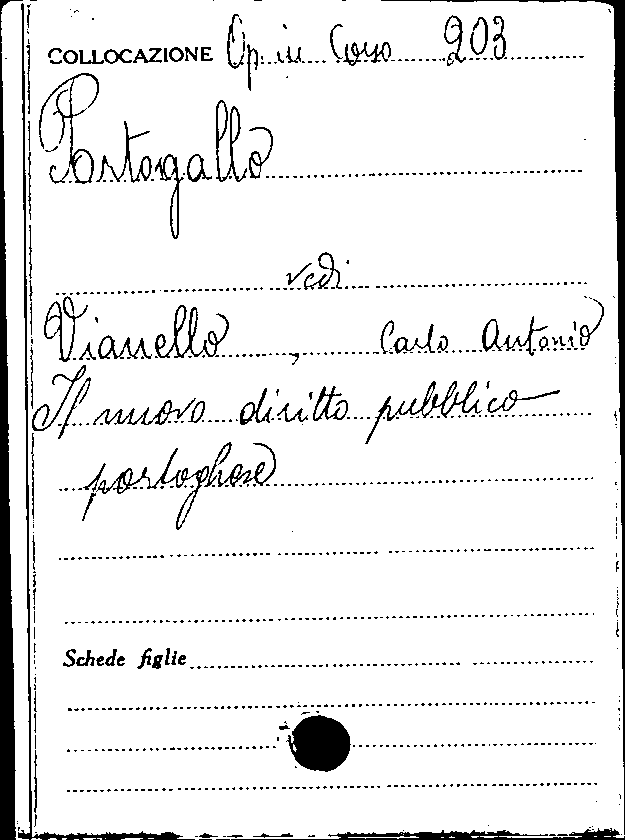 COLLOCAZIONE Op. in Corso 203
Portogallo
vedi
Vianello, Carlo Antonio
Il nuovo diritto pubblico
portoghese
Schede figlie